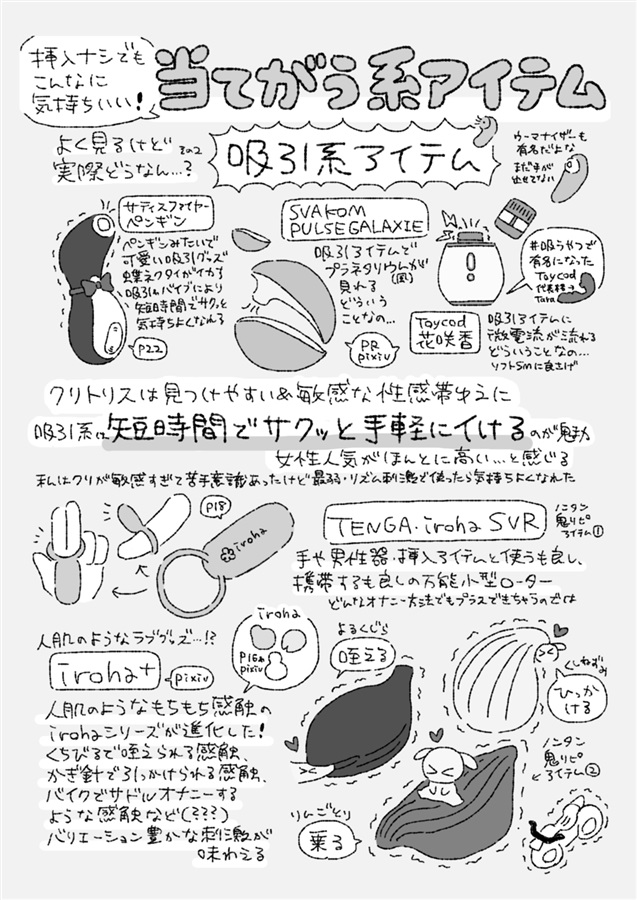 挿入ナシでも
こんなに
気持ちいい!
当てがう系アイテム
よく見るけど その2
実際どうなん…?
吸引系アイテム
ウーマナイザーも
有名だよな
まだ手が
出せてない
サティスファイヤー
ペンギン
ペンギンみたいで
可愛い吸引グッズ
蝶ネクタイがイカす
吸引&バイブにより
短時間でサクッと
気持ちよくなれる
P22
SVAKOM
PULSEGALAXIE
吸引アイテムで
プラネタリウムが
(風)
見れる
どういう
ことなの…
PR
pixiv
#吸うやつで
有名になった
Toycod
代表様→
Tara
Toycod
花咲香
吸引アイテムに
微電流が流れる
どういうことなの…
ソフトSMに良さげ
クリトリスは見つけやすい&敏感な性感帯ゆえに
吸引系は短時間でサクッと手軽にイけるのが魅力
女性人気がほんとに高い…と感じる
私はクリが敏感すぎて苦手意識あったけど最弱・リズム刺激で使ったら気持ちよくなれた
P18
iroha
TENGA・iroha SVR
ノンタン
鬼リピ
アイテム①
手や男性器・挿入アイテムと使うも良し、
携帯するも良しの万能小型ローター
どんなオナニー方法でもプラスできちゃうのでは
人肌のようなラブグッズ…!?
iroha+
pixiv
iroha
P16&
pixiv
人肌のようなもちもち感触の
irohaシリーズが進化した!
くちびるで咥えられる感触、
かぎ針で引っかけられる感触、
バイクでサドルオナニーする
ような感触など(???)
バリエーション豊かな刺激が
味わえる
よるくじら
咥える
くしねずみ
ひっか
ける
りんごとり
乗る
ノンタン
鬼リピ
アイテム②